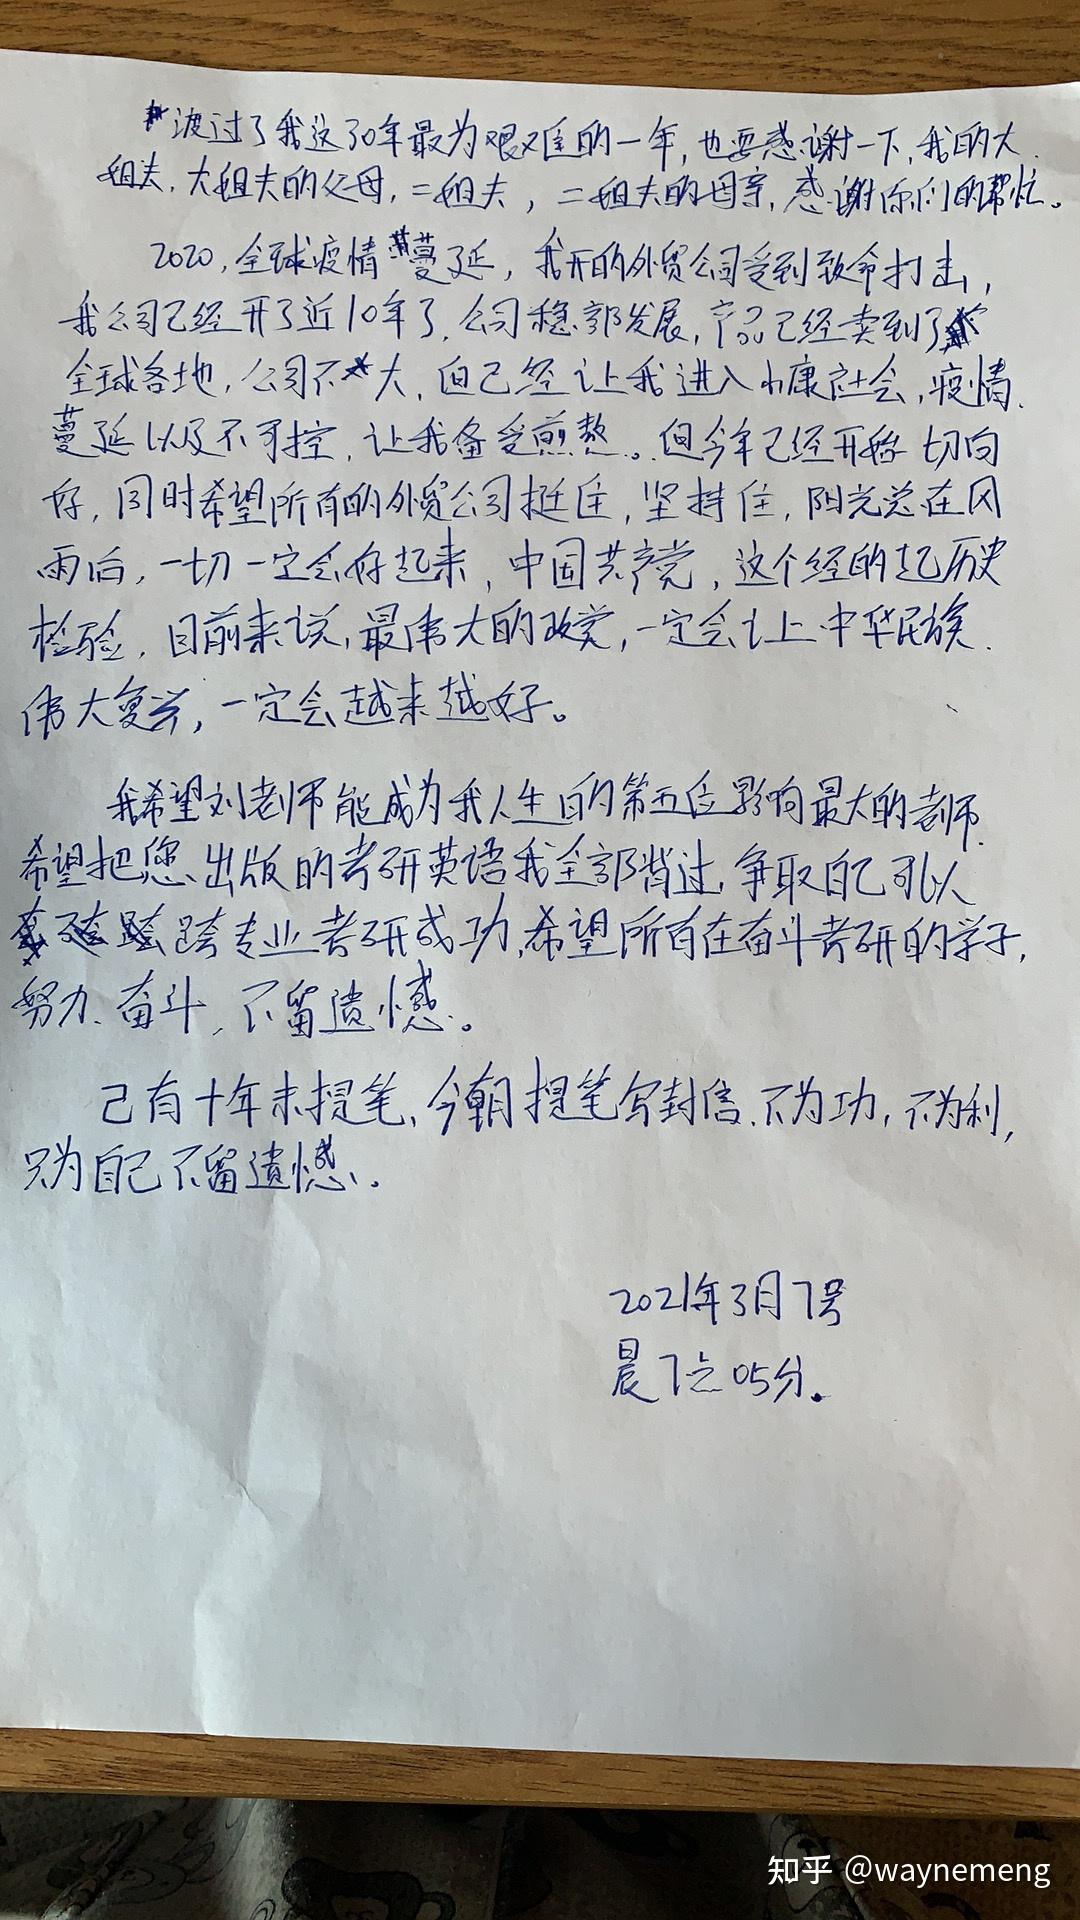 渡过了我这30年最为艰难的一年,也要感谢一下,我的大
姐夫,大姐夫的父母,二姐夫,二姐夫的母亲,感谢你们的帮忙。
2020,全球疫情蔓延,我开的外贸公司受到致命打击,
我公司已经开了近10年了,公司稳部发展,产品已经卖到了
全球各地,公司不大,但已经让我进入小康社会,疫情
蔓延以及不可控,让我备受煎熬。但今年已经开始切向
好,同时希望所有的外贸公司挺住,坚持住,阳光总在风
雨后,一切一定会好起来,中国共产党,这个经的起历史
检验,目前来说,最伟大的政党,一定会让上中华民族
伟大复兴,一定会越来越好。
我希望刘老师能成为我人生的第五位影响最大的老师
希望把您出版的考研英语我全部背过,争取自己可以
跨专业考研成功,希望所有在奋斗考研的学子,
努力、奋斗,不留遗憾。
已有十年未提笔,今朝提笔写封信,不为功,不为利,
只为自己不留遗憾.
2021年3月7号
晨7点05分.
知乎 @waynemeng